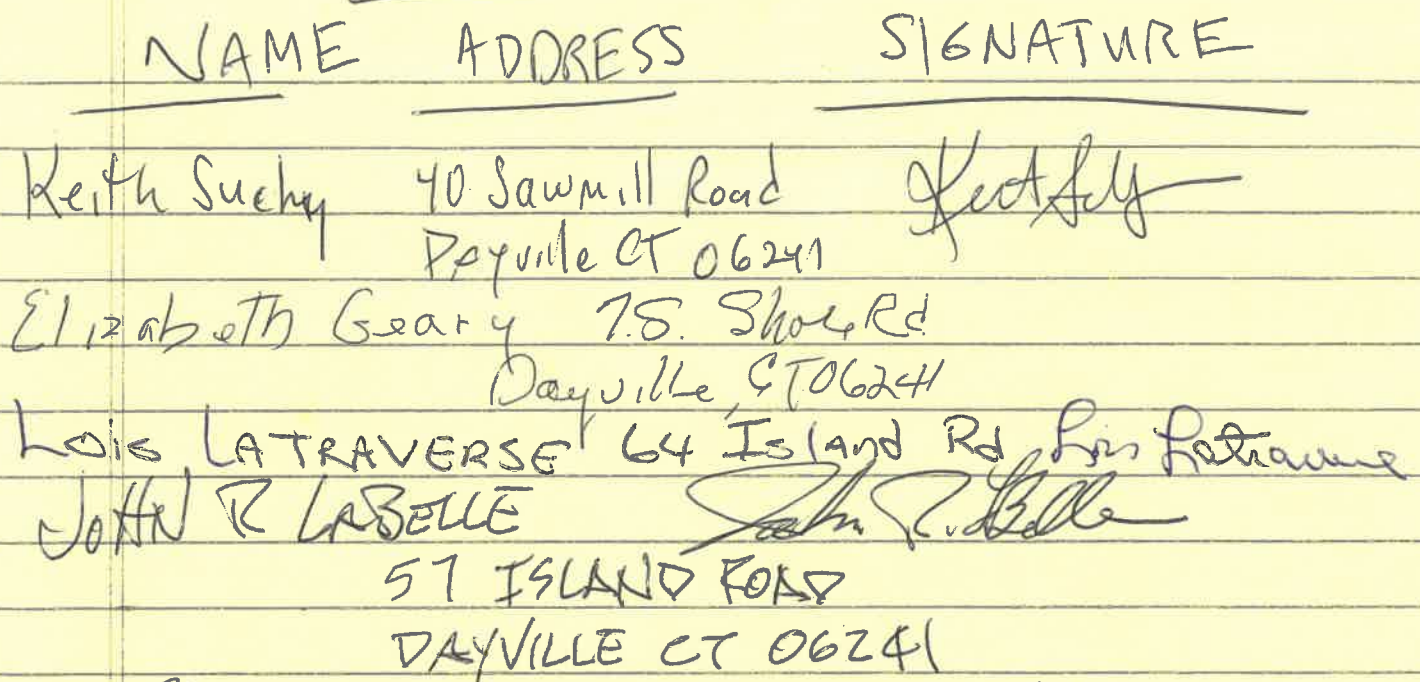 NAME ADDRESS SIGNATURE
Keith Suchy 40 Sawmill Road
Dayville CT 06241
Elizabeth Geary 7 S. Shore Rd
Dayville, CT 06241
Lois LATRAVERSE 64 Island Rd Lois Latraverse
JOHN R LABELLE John R. LaBelle
57 ISLAND ROAD
DAYVILLE CT 06241